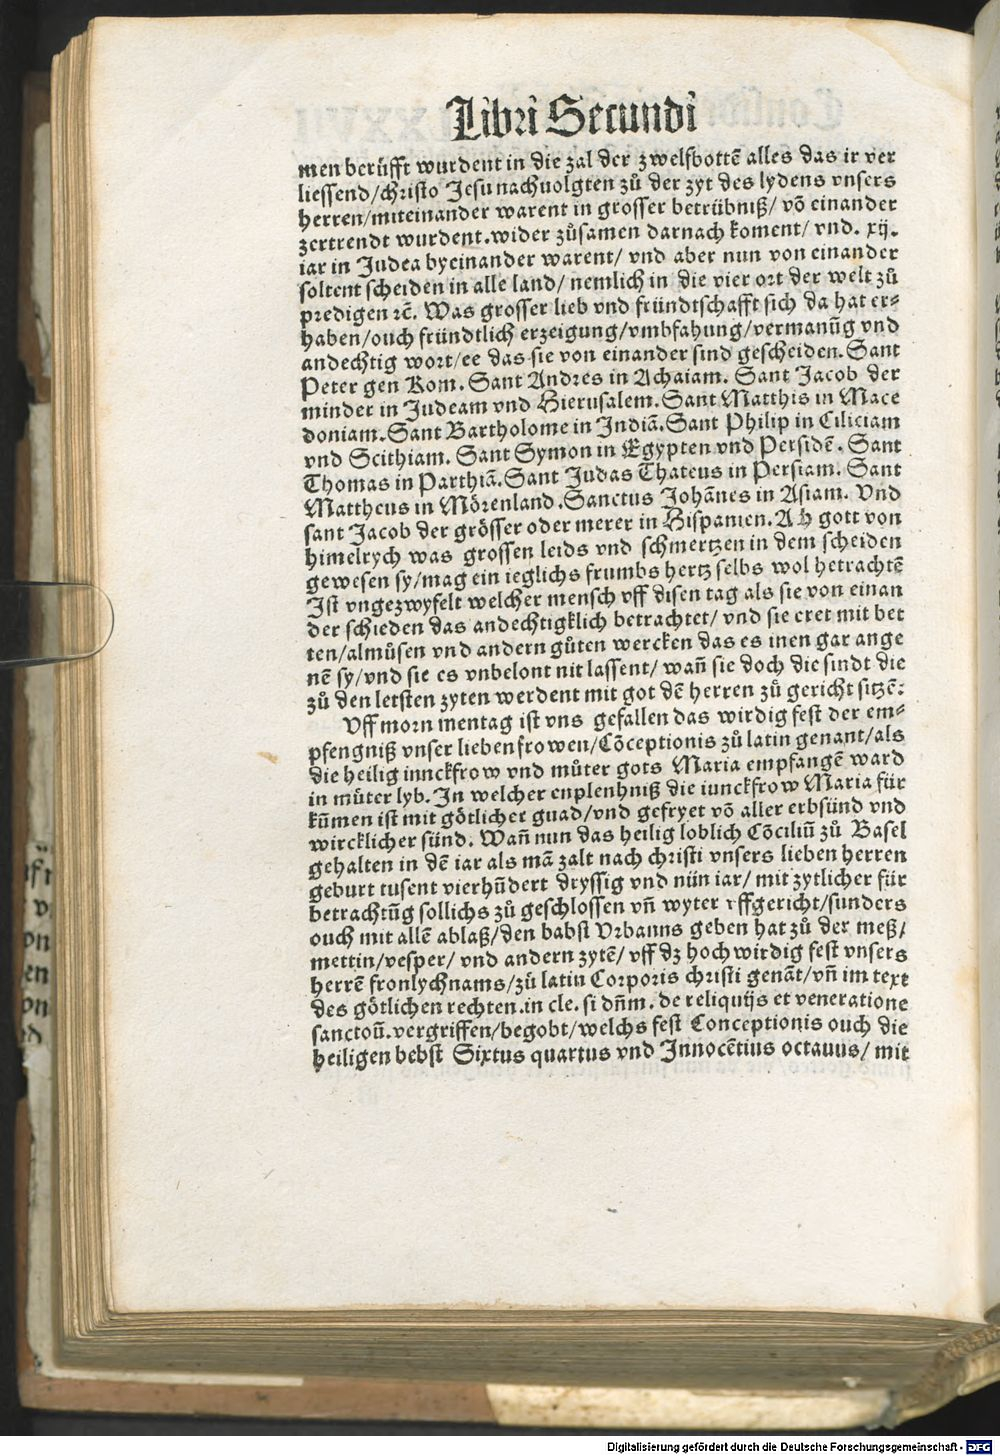 Libri Secundi
men berüfft wurdent in die zal der zwelfbottē alles das ir ver
liessend/christo Jesu nachuolgten zů der zyt des lydens vnsers
herren/miteinander warent in grosser betrübniß/ vō einander
zertrendt wurdent.wider zůsamen darnach koment/ vnd. xij.
iar in Judea byeinander warent/ vnd aber nun von einander
soltent scheiden in alle land/ nemlich in die vier ort der welt zů
predigen ꝛc̄. Was grosser lieb vnd fründtschafft sich da hat er⸗
haben/ouch fründtlich erzeigung/vmbfahung/vermanūg vnd
andechtig wort/ee das sie von einander sind gescheiden. Sant
Peter gen Rom. Sant Andres in Achaiam. Sant Jacob der
minder in Judeam vnd Hierusalem. Sant Matthis in Mace
doniam. Sant Bartholome in Indiā. Sant Philip in Ciliciam
vnd Scithiam. Sant Symon in Egypten vnd Persidē. Sant
Thomas in Parthiā. Sant Judas Thateus in Persiam. Sant
Mattheus in Mörenland. Sanctus Johānes in Asiam. Vnd
sant Jacob der grösser oder merer in Hispanien. Ah gott von
himelrych was grossen leids vnd schmertzen in dem scheiden
gewesen sy/mag ein ieglichs frumbs hertz selbs wol betrachtē
Ist vngezwyfelt welcher mensch vff disen tag als sie von einan
der schieden das andechtigklich betrachtet/ vnd sie eret mit bet
ten/almůsen vnd andern gůten wercken das es inen gar ange
nē sy/vnd sie es vnbelont nit lassent/ wañ sie doch die sindt die
zů den letsten zyten werdent mit got dē herren zů gericht sitzē:
Vff morn mentag ist vns gefallen das wirdig fest der em⸗
pfengniß vnser lieben frowen/Cōceptionis zů latin genant/als
die heilig innckfrow vnd můter gots Maria empfangē ward
in můter lyb. In welcher enplenhniß die iunckfrow Maria für
kūmen ist mit götlicher gnad/vnd gefryet vō aller erbsünd vnd
wircklicher sünd. Wañ nun das heilig loblich Cōciliū zů Basel
gehalten in dē iar als mā zalt nach christi vnsers lieben herren
geburt tusent vierhūdert dryssig vnd nün iar/ mit zytlicher für
betrachtūg sollichs zů geschlossen vñ wyter vffgericht/sunders
ouch mit allē ablaß/den babst Vrbanns geben hat zů der meß/
mettin/vesper/ vnd andern zytē/ vff dz hochwirdig fest vnsers
herrē fronlychnams/zů latin Corporis christi genāt/vñ im text
des götlichen rechten.in cle. si dñm. de reliquijs et veneratione
sanctoū.vergriffen/begobt/welchs fest Conceptionis ouch die
heiligen bebst Sixtus quartus vnd Innocētius octauus/ mit
Digitalisierung gefördert durch die Deutsche Forschungsgemeinschaft - DFG